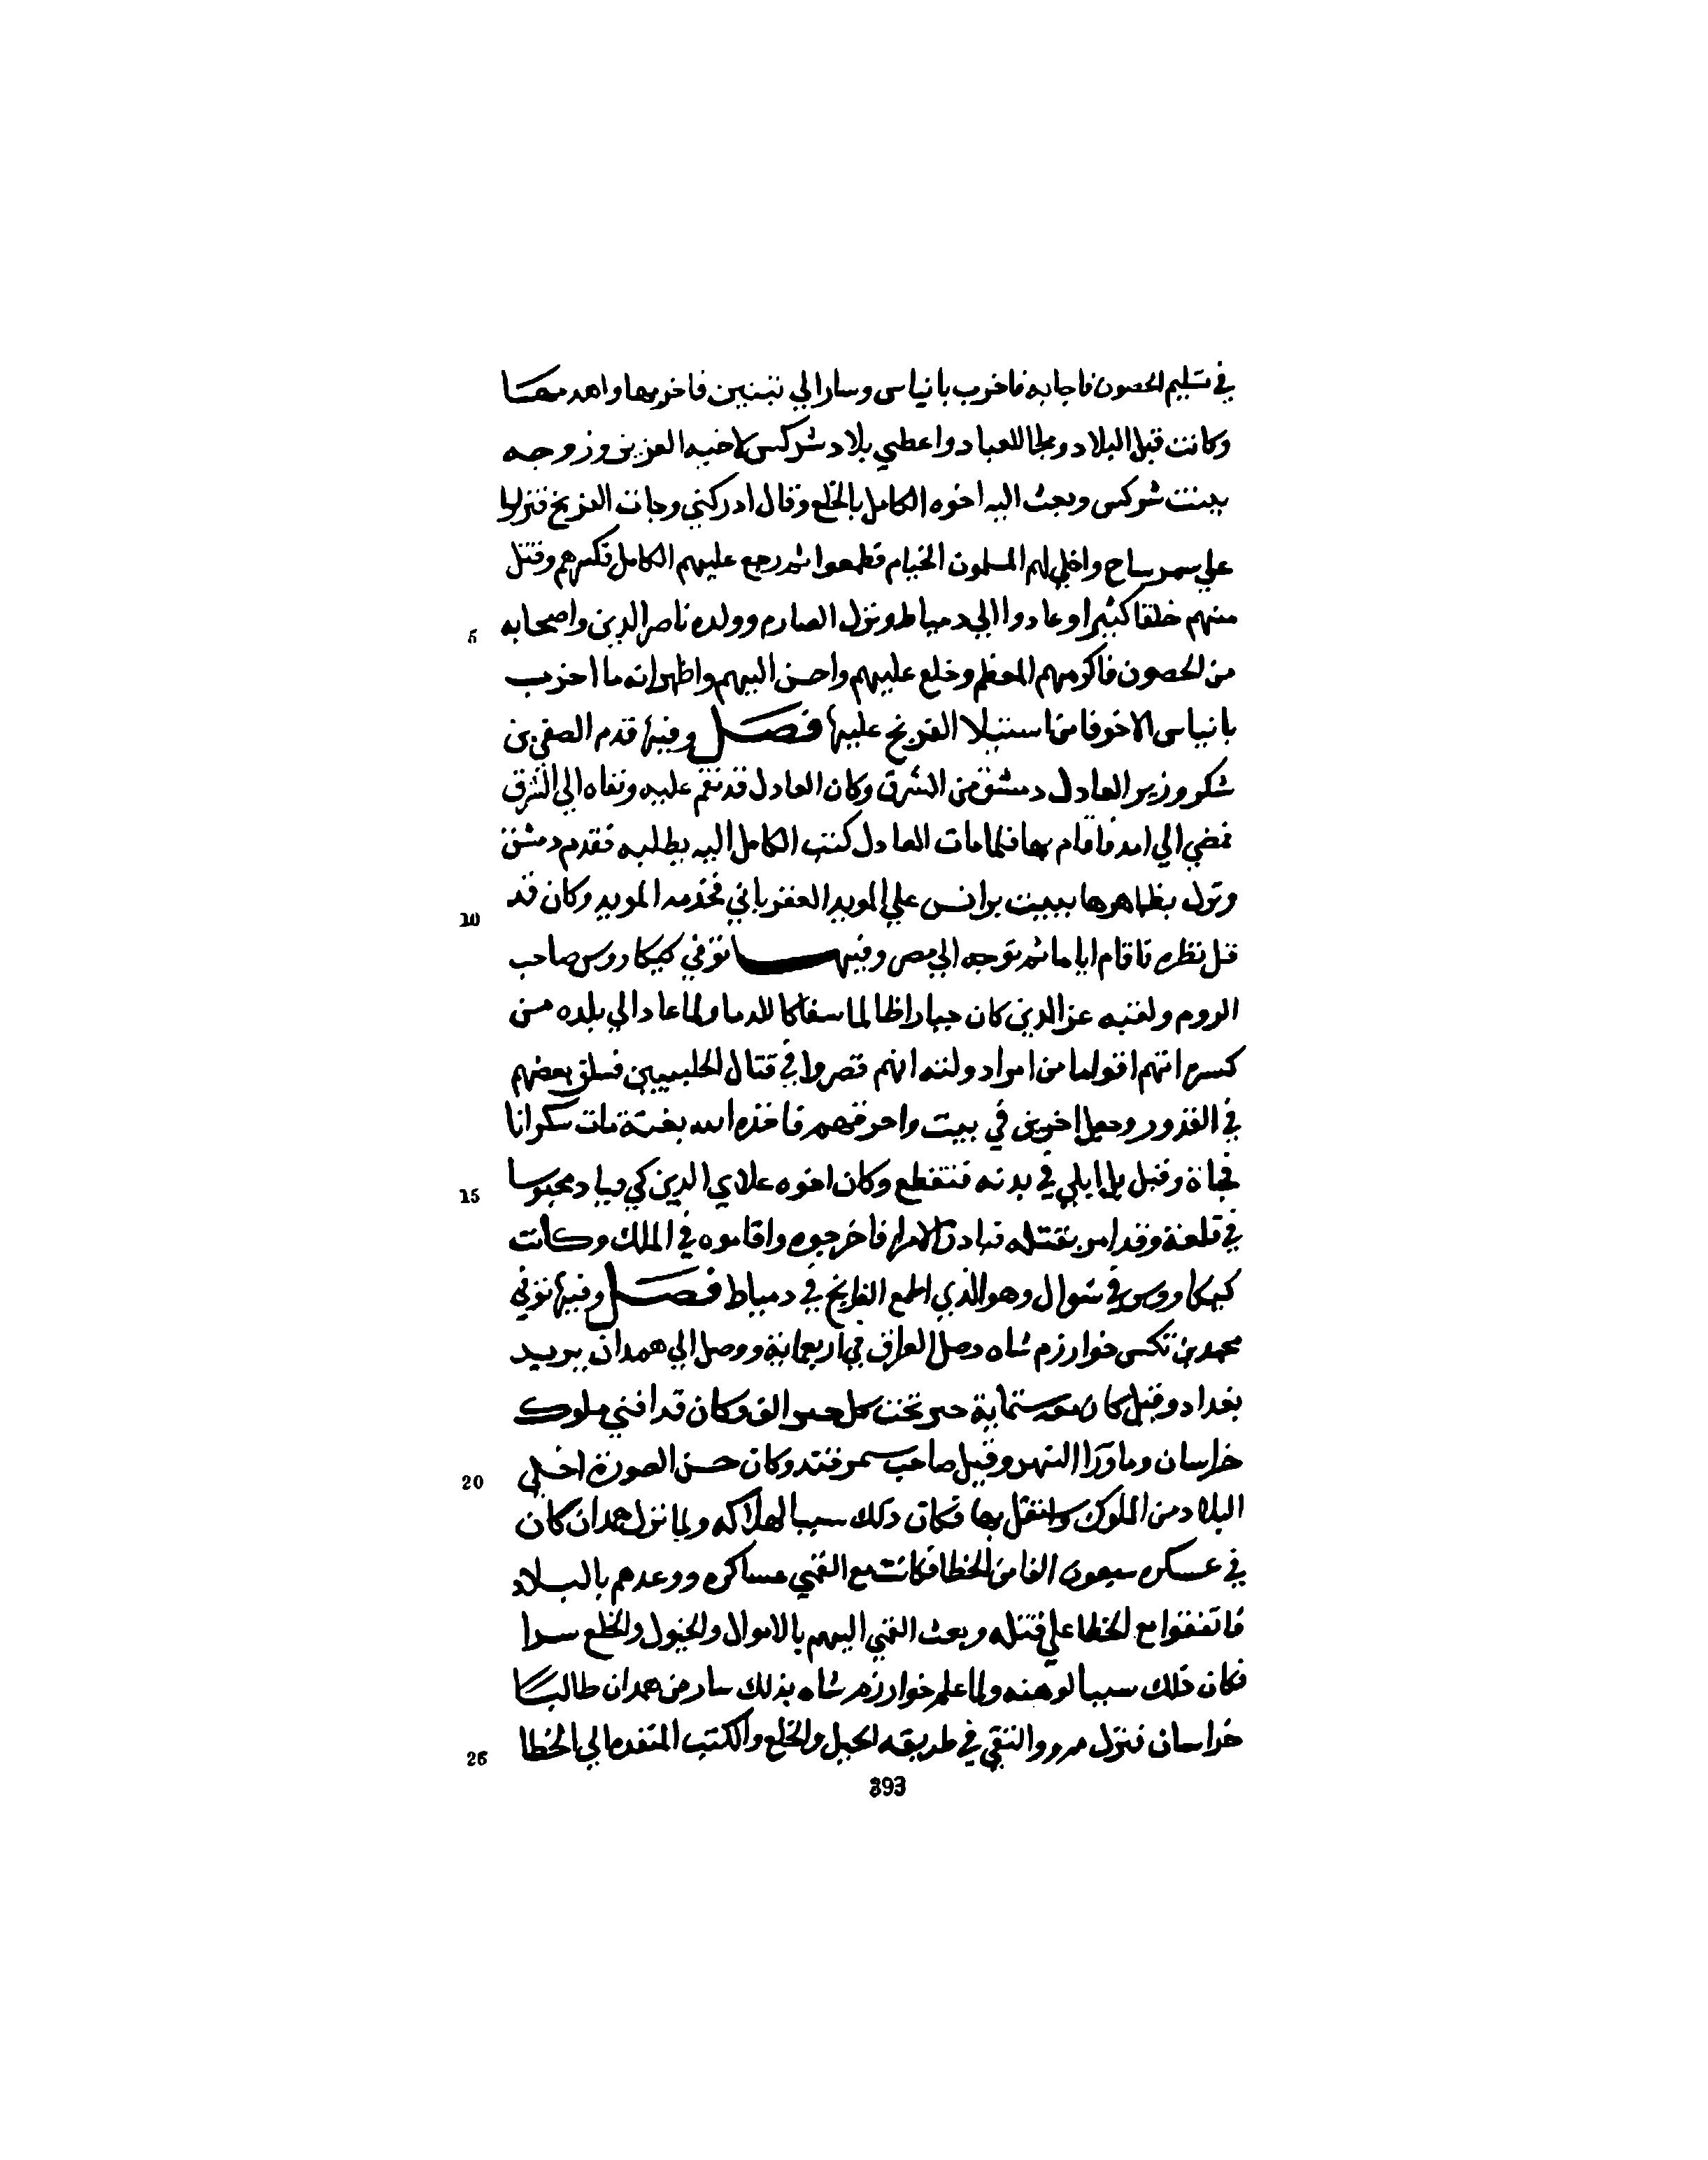 في تسليم الحصون فاجابه فاخرب بانياس وسار الي تبنين فاخربها واهدمها
وكانت قبل البلاد وملجا للعباد واعطي بلاد شركس لاخيه العزيز وزوجه
ببنت شركس وبعث اليه اخوه الكامل بالخلع وقال ادركني وجات الفرنج فنزلوا
علي سمرساح واخلي لهم المسلمون الخيام فطمعوا ثم رجع عليهم الكامل فكسرهم وقتل
منهم خلقا كثيرا وعادوا الي دمياط ونزل الصارم وولده ناصر الدين واصحابه 5
من الحصون فاكرمهم المعظم وخلع عليهم واحسن اليهم واظهر انه ما اخرب
بانياس الا خوفا من استيلا الفرنج عليها فصل وفيها قدم الصفي بن
شكر وزير العادل دمشق من الشرق وكان العادل قد نقم عليه ونفاه الي الشرق
فمضي الي امد فاقام بها فلما مات العادل كتب الكامل اليه يطلبه فقدم دمشق
ونزل بظاهرها ببيت برانس علي المويد العقرباني فخدمه المويد وكان قد 10
قل نظره فاقام اياما ثم توجه الي مصر وفيها توفي كيكاروس صاحب
الروم ولقبه عز الدين كان جبارا ظالما سفاكا للدما ولما عاد الي بلده من
كسره اتهم اقواما من امرا دولته انهم قصروا في قتال الحلبيين فسلق بعضهم
في القدور وجعل اخرين في بيت واحرقهم فاخذه الله بغتة مات سكرانا
فجاة وقيل بل ابلي في بدنه فتقطع وكان اخوه علاي الدين كي قباد محبوسا 15
في قلعة وقد امر بقتله فبادرت الامرا فاخرجوه واقاموه في الملك وكانت
كيكاووس في شوال وهو الذي اطمع الفرنج في دمياط فصل وفيها توفي
محمد بن تكس خوارزم شاه وصل العراق في اربعماية ووصل الي همدان يريد
بغداد وقيل كان معه ستماية حبر تحت كل حبر الف وكان قد افني ملوك
خراسان وما ورا النهر وقيل صاحب سمرقند وكان حسن الصورة اخلي 20
البلاد من الملوك وانتقل بها فكان ذلك سببا لهلاكه ولما نزل همدان كان
في عسكره سبعون الفا من الخطا فكاتب مع القمي عساكره ووعدهم بالبلاد
فاتفقوا مع الخطا علي قتله وبعث القمي اليهم بالاموال والخيول والخلع سرا
فكان ذلك سببا لوهنه ولما علم خوارزم شاه بذلك سار من همدان طالبا
خراسان فنزل مرو والتقي في طريقه الخيل والخلع والكتب المتقدما الي الخطا 25
393